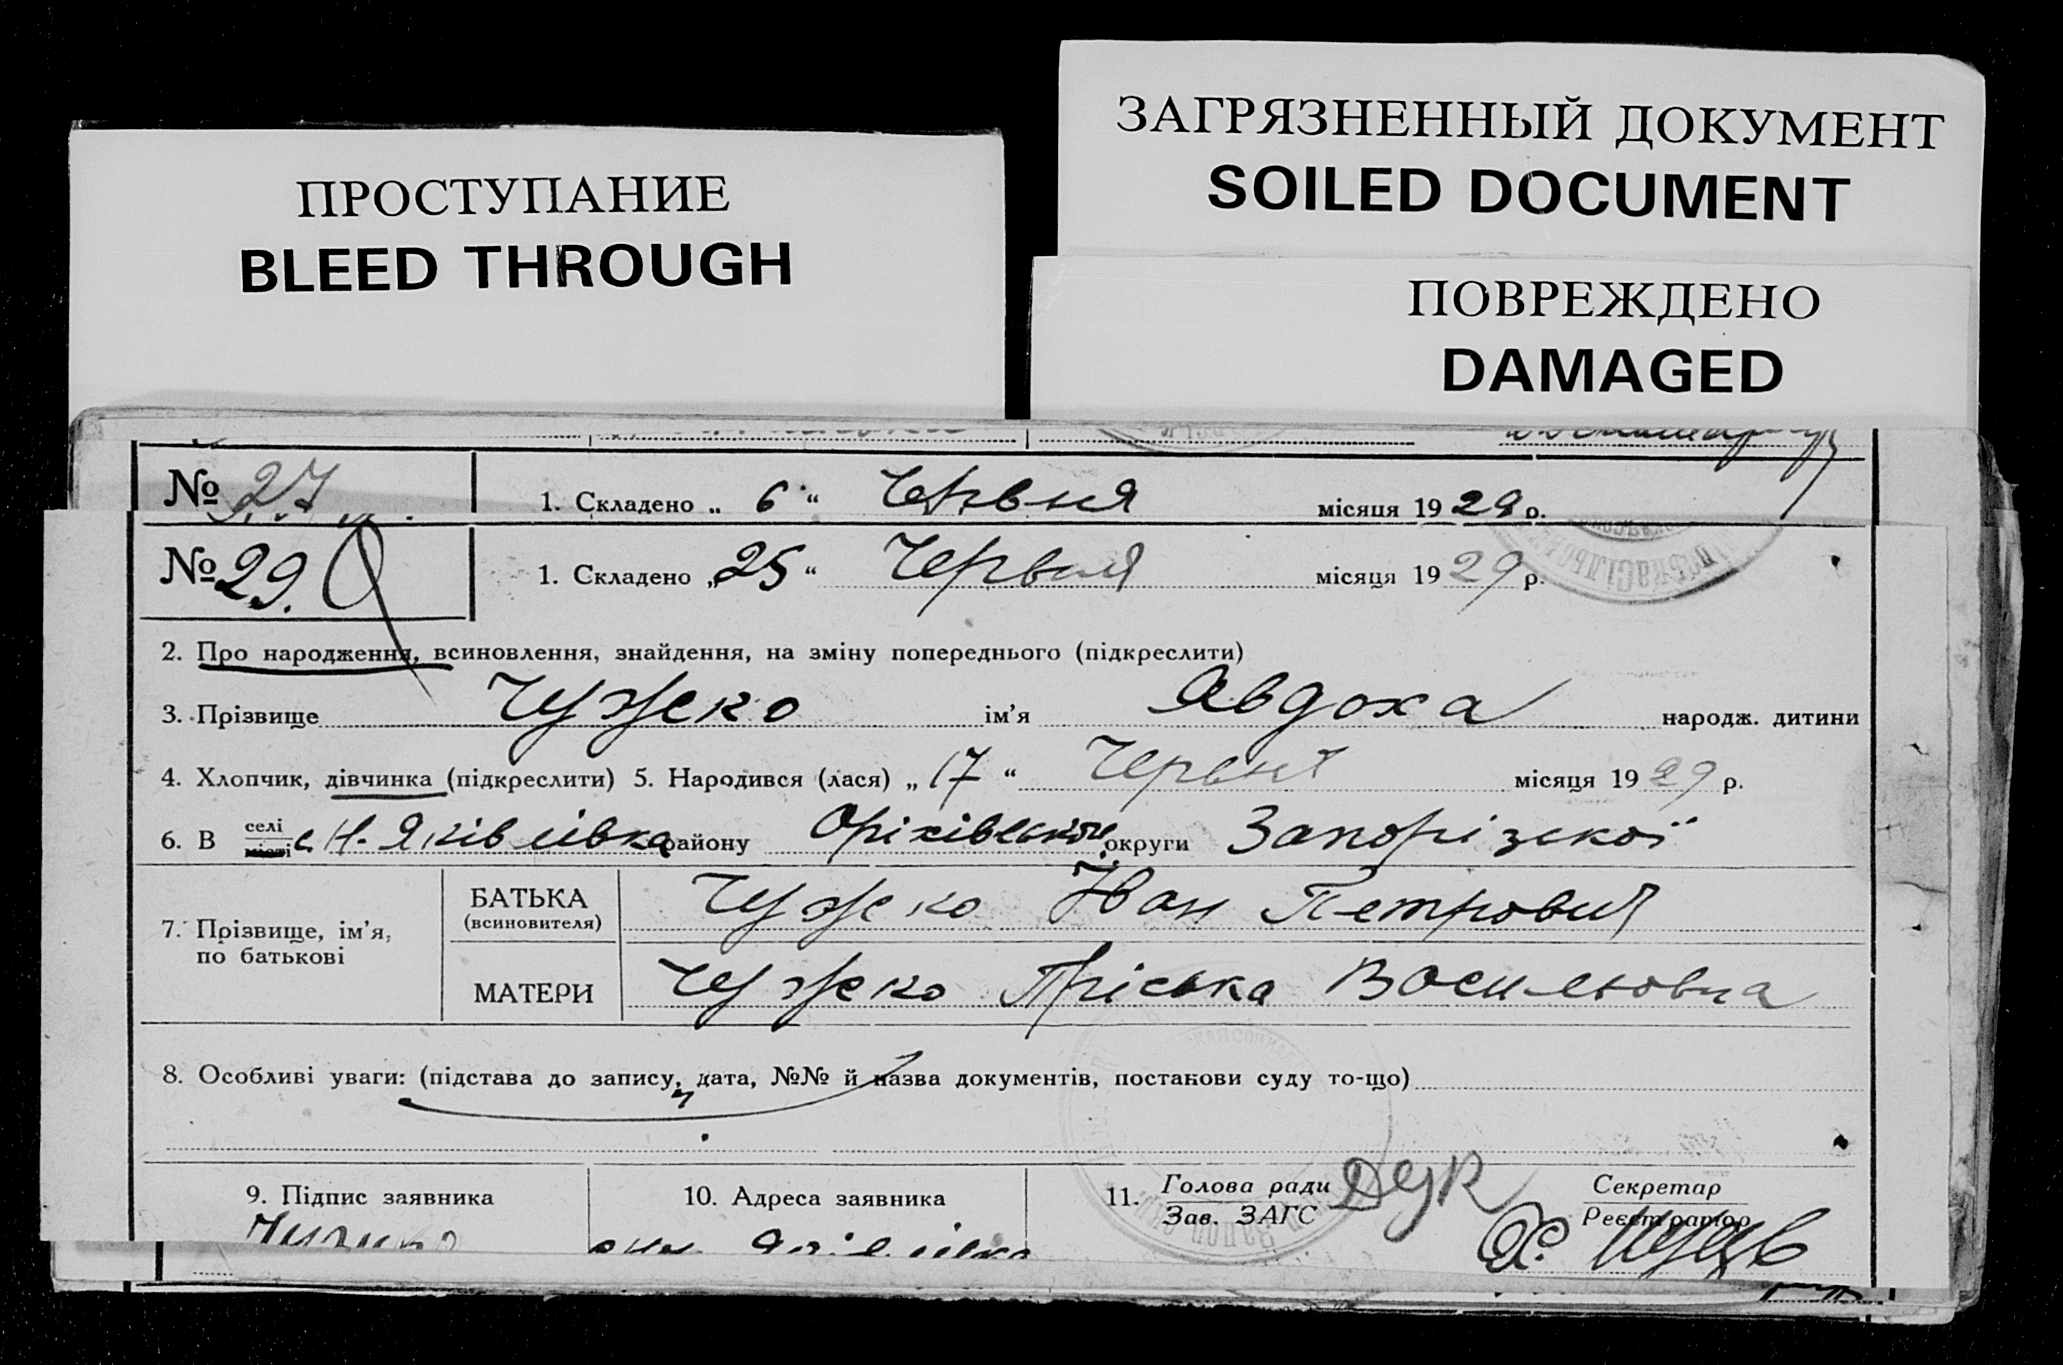 ПРОСТУПАНИЕ
BLEED THROUGH
ЗАГРЯЗНЕННЫЙ ДОКУМЕНТ
SOILED DOCUMENT
ПОВРЕЖДЕНО
DAMAGED
№ 27 1. Складено „ 6 “ Червня місяця 1929 р.
№ 29. 1. Складено „25“ Червня місяця 1929 р.
2. Про народження, всиновлення, знайдення, на зміну попереднього (підкреслити)
3. Прізвище Чужеко ім’я Явдоха народж. дитини
4. Хлопчик, дівчинка (підкреслити) 5. Народився (лася) „ 17 “ Червня місяця 1929 р.
6. В селі місті с. Н. Яківлівка району Оріхівської округи Запорізскої
7. Прізвище, ім’я, по батькові
БАТЬКА (всиновителя) Чужеко Іван Петрович
МАТЕРИ Чужеко Пріська Васильовна
8. Особливі уваги: (підстава до запису, дата, №№ й назва документів, постанови суду то-що)
9. Підпис заявника 10. Адреса заявника 11. Голова ради Зав. ЗАГС Дук Секретар Реєстратор